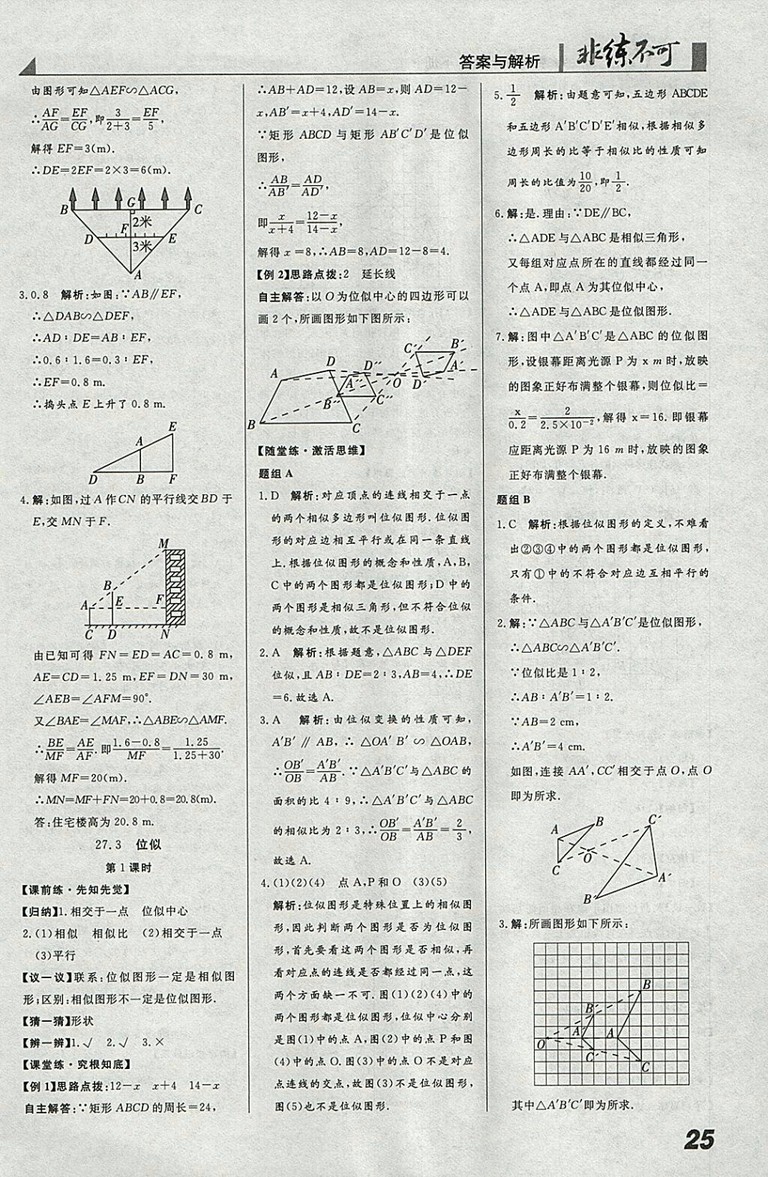 答案与解析 非练不可
由图形可知△AEF∽△ACG,
∴AF/AG=EF/CG,即3/(2+3)=EF/5,
解得EF=3(m).
∴DE=2EF=2×3=6(m).
B G C
2米
D F E
3米
A
3.0.8 解析:如图:∵AB∥EF,
∴△DAB∽△DEF,
∴AD∶DE=AB∶EF,
∴0.6∶1.6=0.3∶EF,
∴EF=0.8 m.
∴捣头点E上升了0.8 m.
E
A
D B F
4.解:如图,过A作CN的平行线交BD于
E,交MN于F.
M
B
A E F
C D N
由已知可得FN=ED=AC=0.8 m,
AE=CD=1.25 m,EF=DN=30 m,
∠AEB=∠AFM=90°.
又∠BAE=∠MAF,∴△ABE∽△AMF.
∴BE/MF=AE/AF.即(1.6-0.8)/MF=1.25/(1.25+30).
解得MF=20(m).
∴MN=MF+FN=20+0.8=20.8(m).
答:住宅楼高为20.8 m.
27.3 位似
第1课时
【课前练·先知先觉】
【归纳】1.相交于一点 位似中心
2.(1)相似 相似比 (2)相交于一点
(3)平行
【议一议】联系:位似图形一定是相似图
形;区别:相似图形不一定是位似图形.
【猜一猜】形状
【辨一辨】1.√ 2.√ 3.×
【课堂练·究根知底】
【例1】思路点拨:12-x x+4 14-x
自主解答:∵矩形ABCD的周长=24,
∴AB+AD=12,设AB=x,则AD=12-
x,AB′=x+4,AD′=14-x.
∵矩形ABCD与矩形AB′C′D′是位似
图形,
∴AB/AB′=AD/AD′,
即x/(x+4)=(12-x)/(14-x),
解得x=8,∴AB=8,AD=12-8=4.
【例2】思路点拨:2 延长线
自主解答:以O为位似中心的四边形可以
画2个,所画图形如下图所示:
C′ B′
A D D″ O
A″ D′ A′
B″ C″
B C
【随堂练·激活思维】
题组A
1.D 解析:对应顶点的连线相交于一点
的两个相似多边形叫位似图形.位似图
形的对应边相互平行或在同一条直线
上.根据位似图形的概念和性质,A,B,
C中的两个图形都是位似图形;D中的
两个图形是相似三角形,但不符合位似
的概念和性质,故不是位似图形.
2.A 解析:根据题意,△ABC与△DEF
位似,且AB∶DE=2∶3,AB=4,∴DE
=6.故选A.
3.A 解析:由位似变换的性质可知,
A′B′∥AB,∴△OA′B′∽△OAB,
∴OB′/OB=A′B′/AB.∵△A′B′C′与△ABC的
面积的比4∶9,∴△A′B′C′与△ABC
的相似比为2∶3,∴OB′/OB=A′B′/AB=2/3,
故选A.
4.(1)(2)(4) 点A,P和O (3)(5)
解析:位似图形是特殊位置上的相似图
形,因此判断两个图形是否为位似图
形,首先要看这两个图形是否相似,再
看对应点的连线是否都经过同一点,这
两个方面缺一不可.图(1)(2)(4)中的
两个图形都是位似图形,位似中心分别
是图(1)中的点A,图(2)中的点P和图
(4)中的点O.图(3)中的点O不是对应
点连线的交点,故图(3)不是位似图形,
图(5)也不是位似图形.
5.1/2 解析:由题意可知,五边形ABCDE
和五边形A′B′C′D′E′相似,根据相似多
边形周长的比等于相似比的性质可知
周长的比值为10/20,即1/2.
6.解:是.理由:∵DE∥BC,
∴△ADE与△ABC是相似三角形,
又每组对应点所在的直线都经过同一
个点A,即点A为其位似中心,
∴△ADE与△ABC是位似图形.
7.解:图中△A′B′C′是△ABC的位似图
形,设银幕距离光源P为x m时,放映
的图象正好布满整个银幕,则位似比=
x/0.2=2/(2.5×10⁻²),解得x=16.即银幕
应距离光源P为16 m时,放映的图象
正好布满整个银幕.
题组B
1.C 解析:根据位似图形的定义,不难看
出②③④中的两个图形都是位似图形,
只有①中的不符合对应边互相平行的
条件.
2.解:∵△ABC与△A′B′C′是位似图形,
∴△ABC∽△A′B′C′.
∵位似比是1∶2,
∴AB∶A′B′=1∶2.
∵AB=2 cm,
∴A′B′=4 cm.
如图,连接AA′,CC′相交于点O,点O
即为所求.
A B C′
O
C A′
B′
3.解:所画图形如下所示:
B
B′
O A′ A
C′ C
其中△A′B′C′即为所求.
25